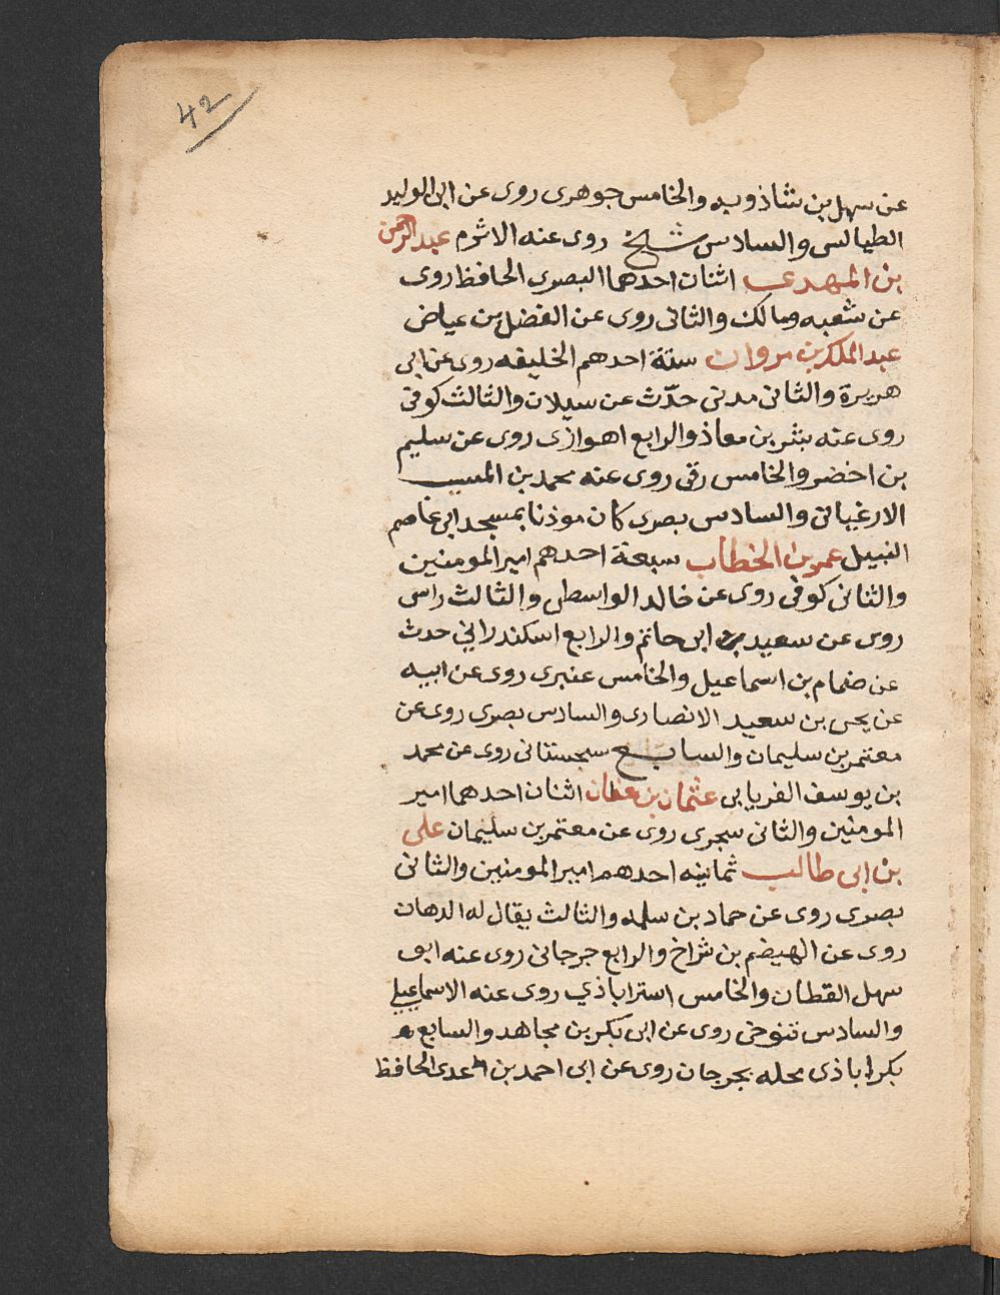 42
عن سهل بن شاذويه والخامس جوهرى روى عن ابى الوليد
الطيالسى والسادس شيخ روى عنه الاثرم عبد الرحمن
بن المهدى اثنان احدهما البصرى الحافظ روى
عن شعبه ومالك والثانى روى عن الفضل بن عياض
عبد الملك بن مروان ستة احدهم الخليفه روى عن ابى
هريرة والثانى مدنى حدّث عن سيلان والثالث كوفى
روى عنه بشر بن معاذ والرابع اهوازى روى عن سليم
بن اخضر والخامس رقى روى عنه محمد بن المسيب
الارغيانى والسادس بصرى كان موذنا بمسجد ابى عاصم
النبيل عمر بن الخطاب سبعة احدهم امير المومنين
والثانى كوفى روى عن خالد الواسطى والثالث راسى
روى عن سعيد بن ابى حاتم والرابع اسكندرانى حدث
عن ضمام بن اسماعيل والخامس عنبرى روى عن ابيه
عن يحى بن سعيد الانصارى والسادس بصرى روى عن
معتمر بن سليمان والسابع سجستانى روى عن محمد
بن يوسف الفريابى عثمان بن عفان اثنان احدهما امير
المومنين والثانى سجرى روى عن معتمر بن سليمان على
بن ابى طالب ثمانيه احدهم امير المومنين والثانى
بصرى روى عن حماد بن سلمه والثالث يقال له الدهان
روى عن الهيضم بن شراخ والرابع جرجانى روى عنه ابو
سهل القطان والخامس استراباذي روى عنه الاسماعيلي
والسادس تنوخى روى عن ابى بكر بن مجاهد والسابع
بكراباذى محله بجرجان روى عن ابى احمد بن عدى الحافظ